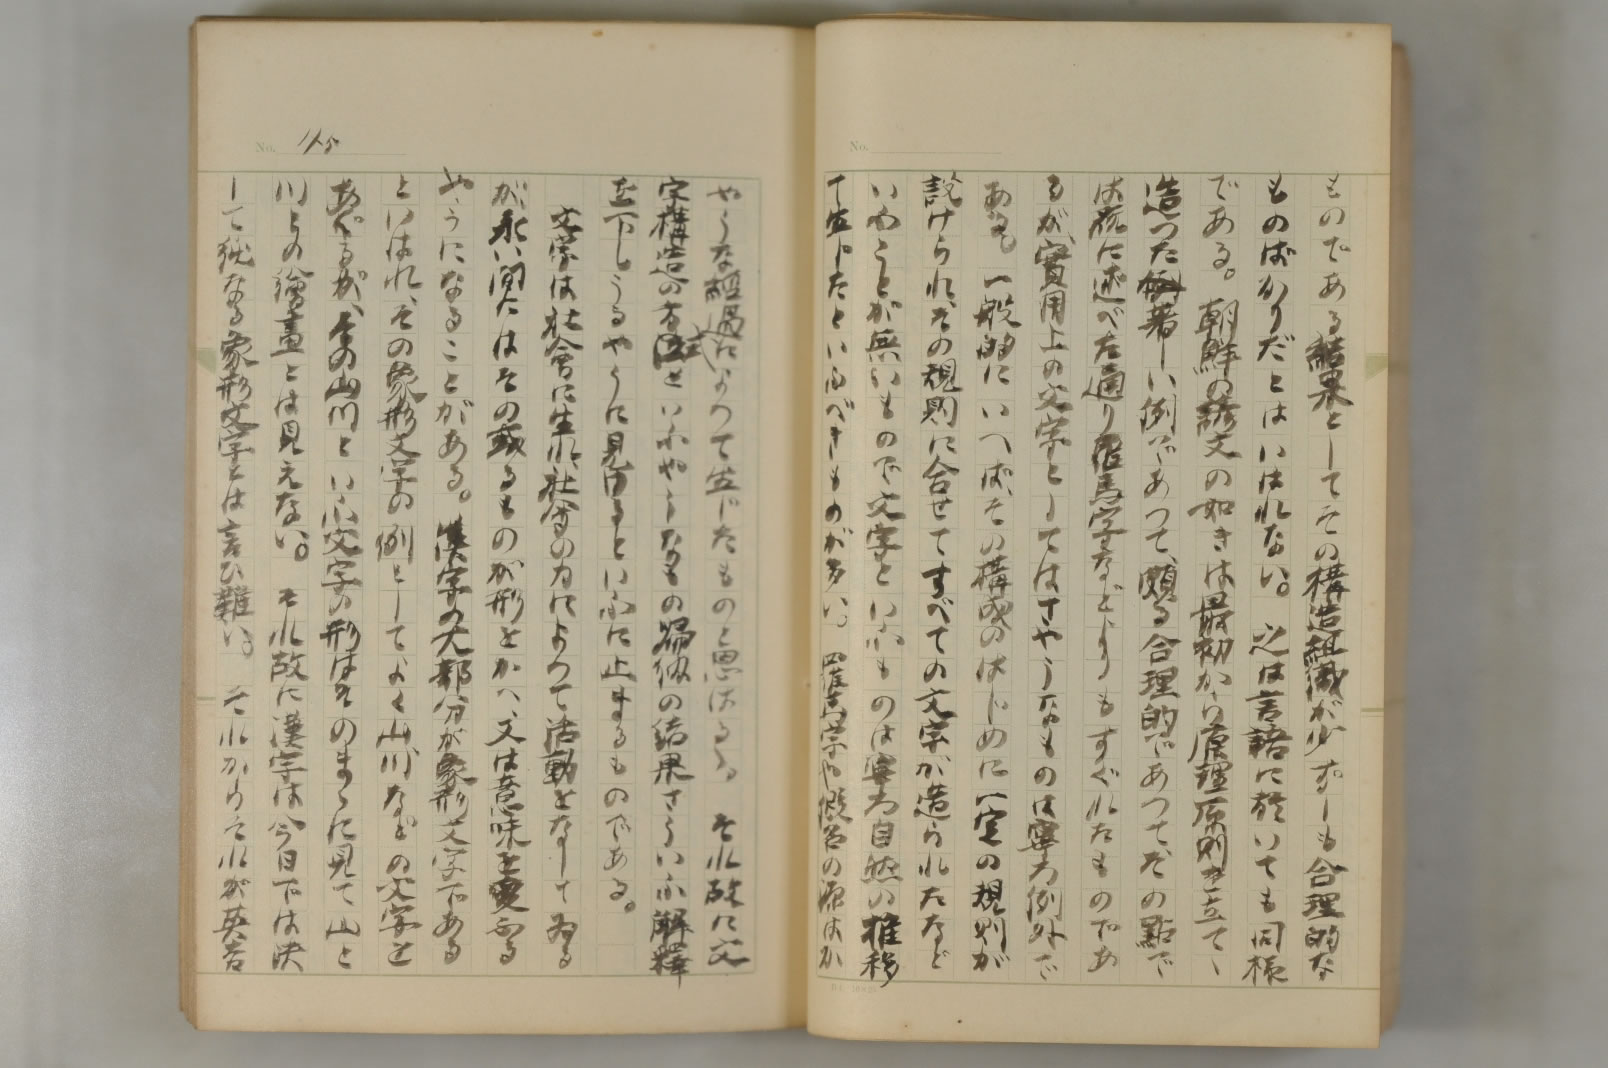 ものである結果としてその構造組織が少ずしも合理的な
ものばかりだとはいはれない。之は言語に於いても同様
である。朝鮮の諺文の如きは最初から原理原則を立てゝ
造つた著しい例であつて、頗る合理的であつてその點で
は夜に述べた通り羅馬字などよりもすぐれたものであ
るが、實用上の文字としてはさやうなものは寧ろ例外で
ある。一般的にいへば、その構成のはじめに一定の規則が
設けられ、その規則に合せてすべての文字が造られたなど
いふことが無いもので文字といふものは寧ろ自然の推移
て生じたといふべきものが多い。羅馬字や假名の源はか
No. 115
やうな經過によつて生じたものと思はるゝ。それ故に文
字構造の方式といふやうなもの歸納の結果さういふ解釋
を下しうるやうに見ゆるといふに止まるものである。
文字は社會に生れ、社會の力によつて活動をなして居る
が永い間にはその或るものが形をかへ、又は意味を變ふる
やうになることがある。漢字の大部分が象形文字である
といはれ、その象形文字の例としてよく山、川などの文字を
あぐるが、今の山川といふ文字の形はそのまゝに見て山と
川との繪畫とは見えない。それ故に漢字は今日では決
して純なる象形文字とは言ひ難い。それからそれが英吉
No.